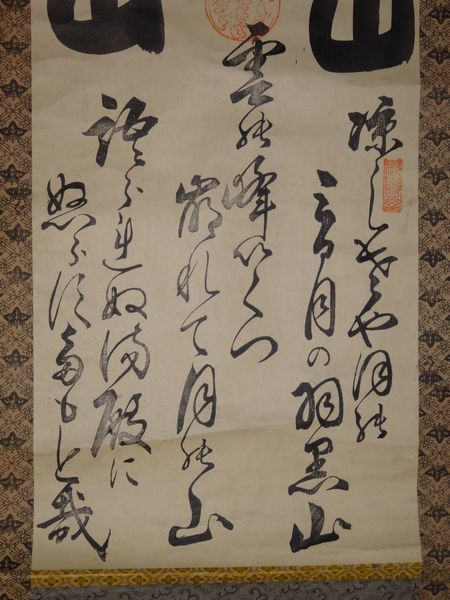 涼しさやほの
三日月の羽黒山
雲の峰いくつ
崩れて月の山
語られぬ湯殿に
ぬらすたもと哉